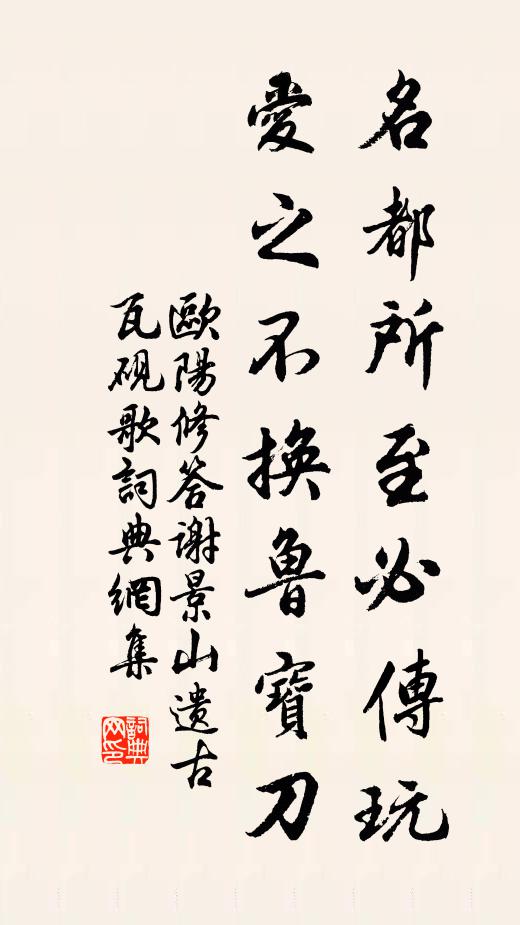 名都所至必傳玩
愛之不換魯寶刀
歐陽修答謝景山遺古
瓦硯歌詞典網集
詞典網印